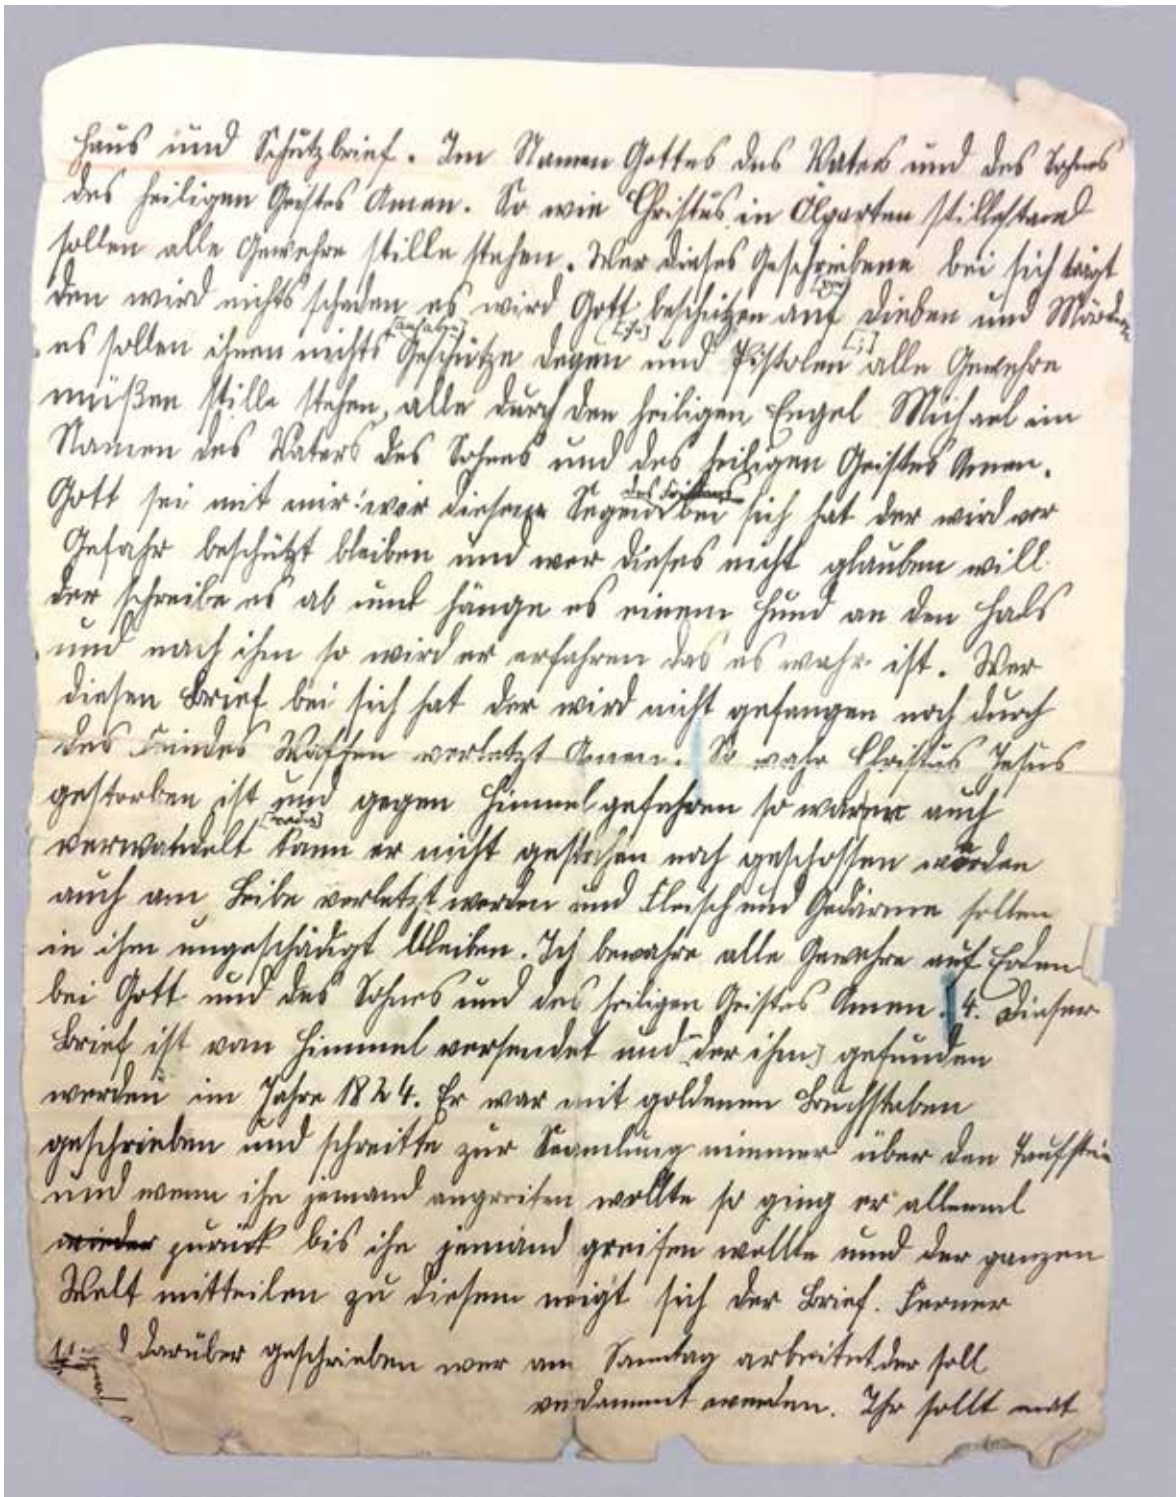 Haus und Schützbrief. Im Namen Gottes des Vaters und des Sohnes
des heiligen Geistes Amen. So wie Christus in Ölgarten stillestand
sollen alle Gewehre stille stehen. Wer dieses Geschriebene bei sich trägt
den wird nichts schaden es wird Gott beschützen auf Dieben und Mördern
es sollen ihnen nichts Geschütze Degen und Pistolen [;] alle Gewehre
müßen stille stehen, alle durch den heiligen Engel Michael im
Namen des Vaters des Sohnes und des heiligen Geistes Amen.
Gott sei mit mir! wer diesen Segen bei sich hat der wird vor
Gefahr beschützt bleiben und wer dieses nicht glauben will
der schreibe es ab und hänge es einem Hund an den Hals
und nach ihm so wird er erfahren das es wahr ist. Wer
diesen Brief bei sich hat der wird nicht gefangen noch durch
des Feindes Waffen verletzt Amen. So wahr Christus Jesus
gestorben ist und gegen Himmel gefahren so auch
verwandelt kann er nicht gestochen noch geschossen werden
auch am Leibe verletzt werden und Fleisch und Gedärme sollen
in ihm ungeschädigt bleiben. Ich bewahre alle Gewehre auf Erden
bei Gott und des Sohnes und des heiligen Geistes Amen. 4. Dieser
Brief ist vom Himmel versendet und der ihm gefunden
werden im Jahre 1824. Er war mit goldenen Buchstaben
geschrieben und zur immer über den Taufstein
und wenn ihn jemand angreifen wollte so ging er allemal
wieder zurück bis ihn jemand greifen wollte und der ganzen
Welt mitteilen zu diesem neigt sich der Brief. Ferner
darüber geschrieben wer am Sonntag arbeitet der soll
verdammt werden. Ihr sollt